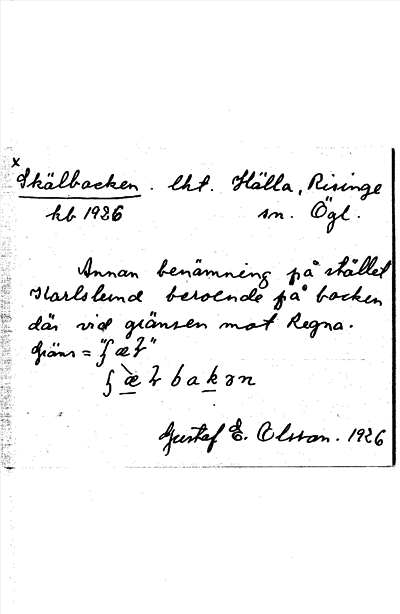 x
Skälbacken. lht. Hälla, Risinge
hb 1926 sn. Ögl.
Annan benämning på stället
Karlslund beroende på backen
där vid gränsen mot Regna.
Gräns = "ʃæɫ"
ʃæ̀ɫbakən
Gustaf E. Olsson. 1926